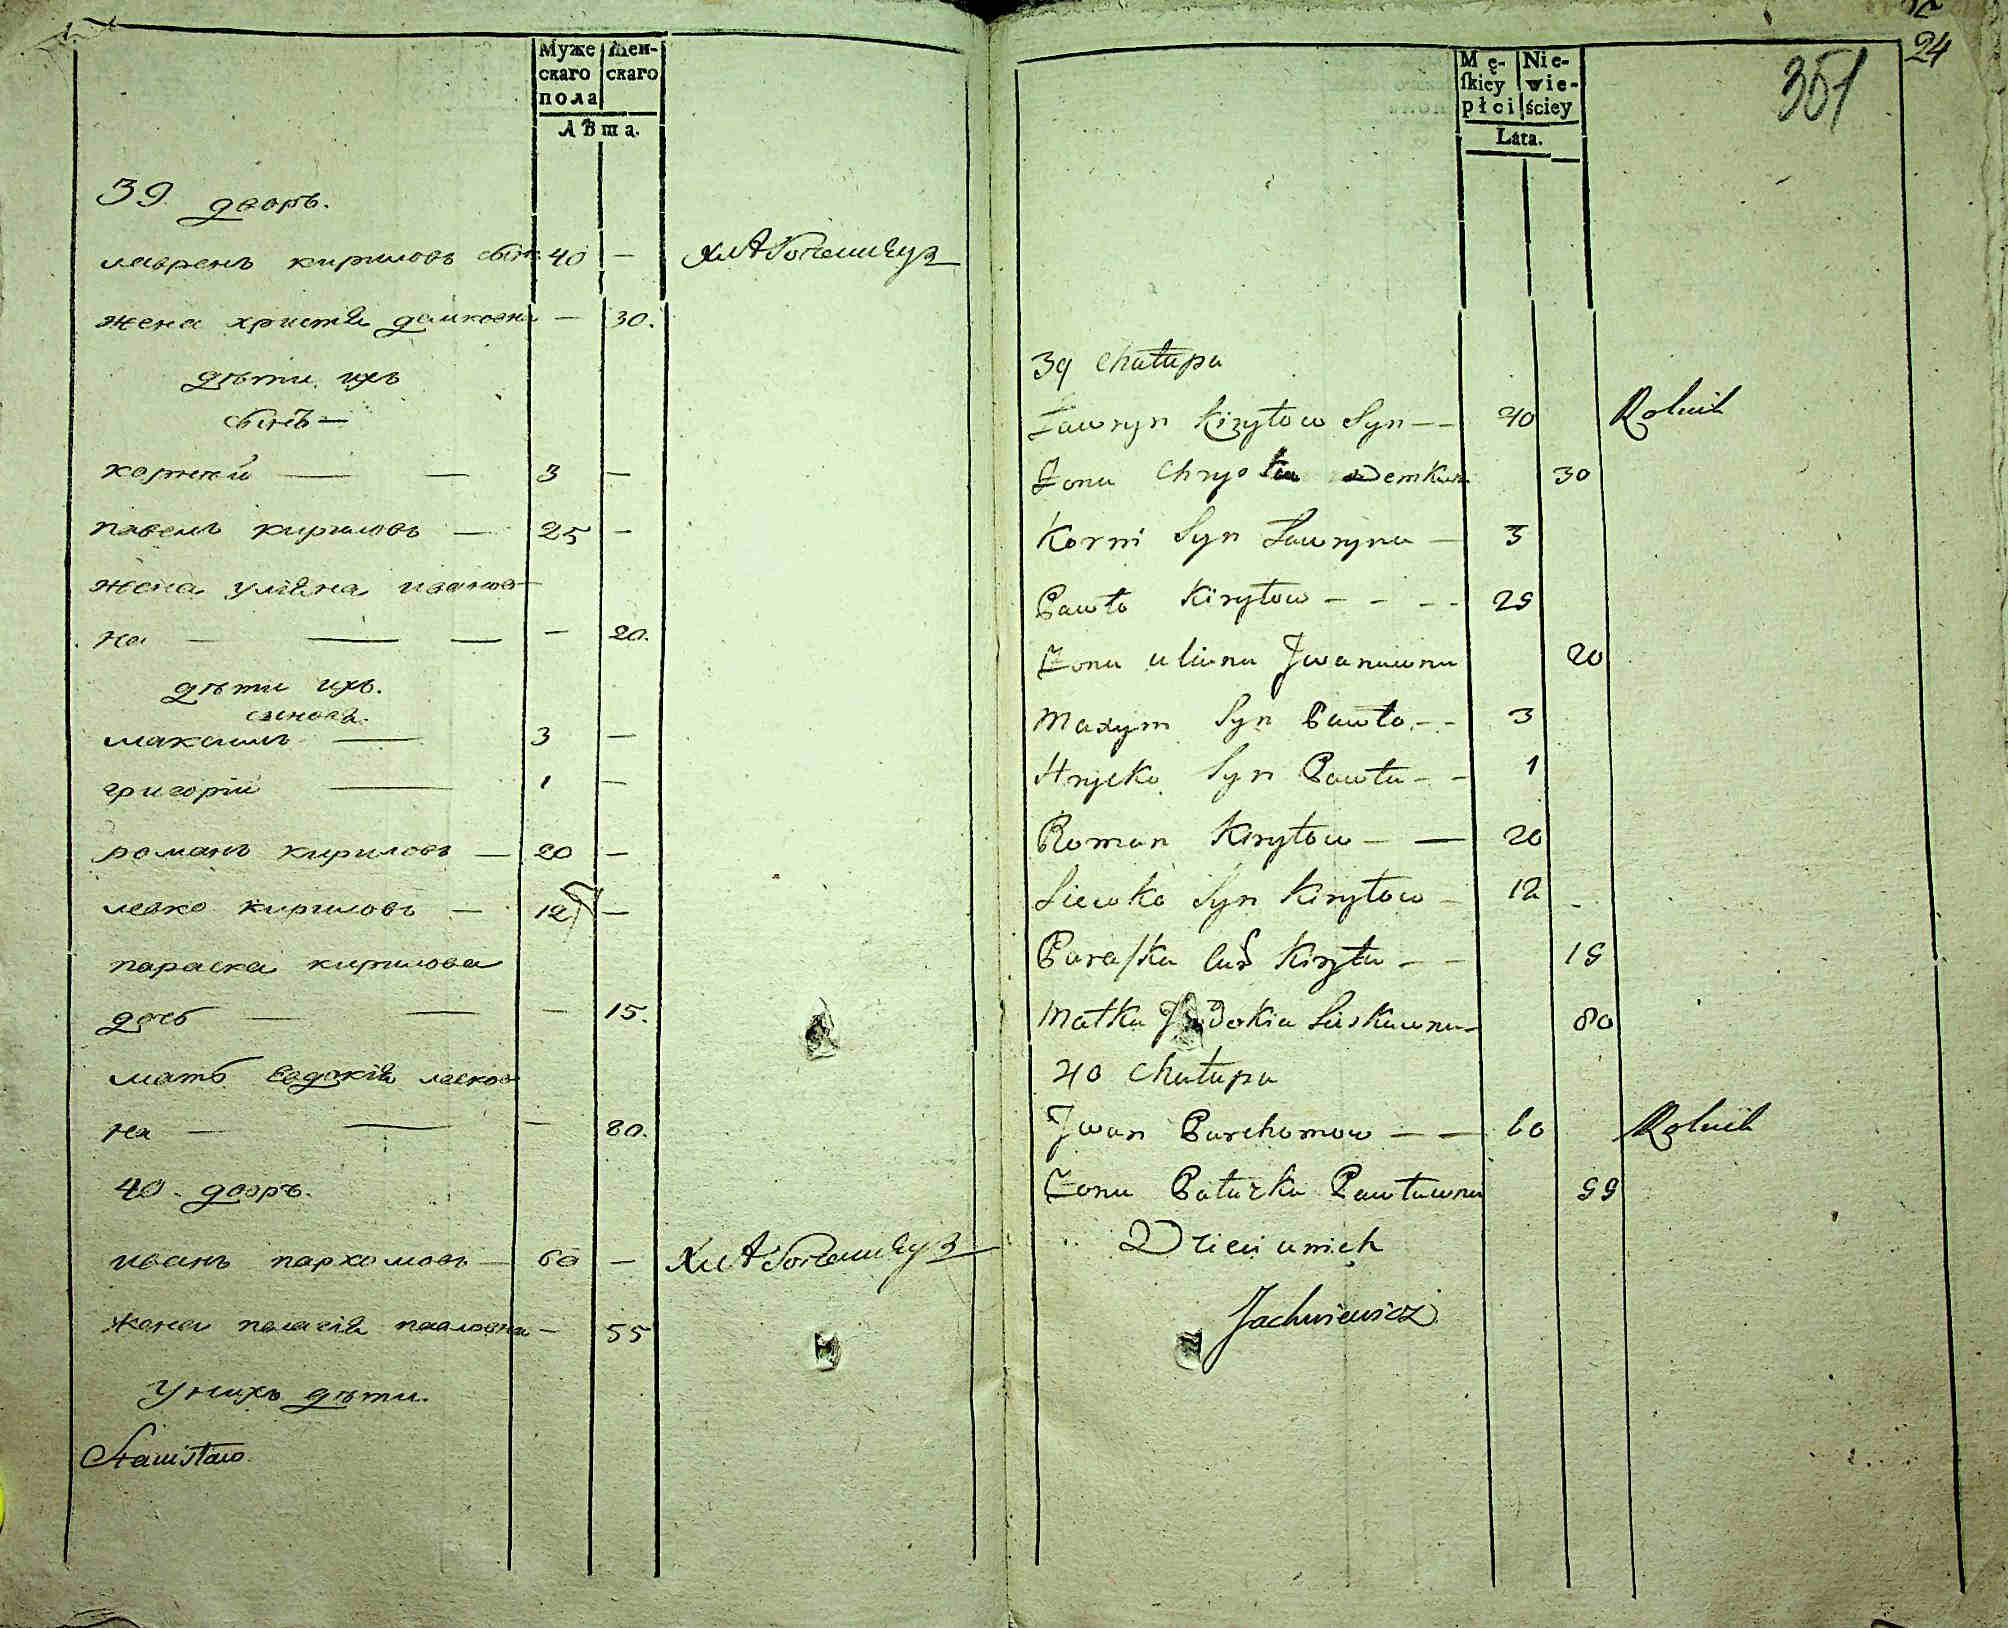 Муже скаго пола
Жен- скаго
Лѣта.
39 дворъ.
лавренъ кириловъ сынъ 40 —
жена христія демковна — 30.
дѣти ихъ
сынъ —
корнѣй — — 3 —
павелъ кириловъ — 25 —
жена уліяна ивановна
на — — — — 20.
дѣти ихъ.
сыновя.
максимъ — 3 —
григорій — 1 —
романъ кириловъ — 20 —
левко кириловъ — 12 —
параска кирилова
дочь — — — 15.
мать евдокія леско
на — — — 80.
40. дворъ.
иванъ пархомовъ — 60 —
жена пелагія павловна — 55
У нихъ дѣти.
Stanisław
24
351
Mę- skiey płci
Nie- wie- ściey
Lata.
39 Chałupa
Ławryn Kiryłow Syn — — 40 Rolnik
Żona Chrystia Demkow 30
Korni Syn Ławryna — 3
Pawło Kiryłow - - - - 25
Żona Uliana Jwanowna 20
Maxym Syn Pawła - - 3
Hryćko Syn Pawła - - 1
Roman Kiryłow — — 20
Lewko Syn Kiryłow - 12 -
Paraska Kiryła - - 15
Matka Jewdokia Leskowna - 80
40 Chałupa
Jwan Parchomow — — 60 Rolnik
Żona Pałażka Pawłowna 55
Dzieci unich
Jachniewicz